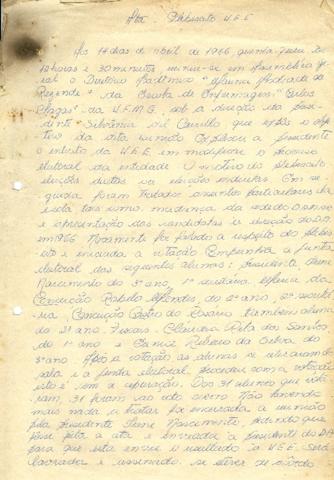 Ata Plebiscito U.E.E
As 14 dias de abril de 1966 quinta-feira às
12 horas e 30 minutos reuniu-se em Assembléia ge
ral o Diretório Acadêmico "Marina Andrada de
Rezende" da Escola de Enfermagem "Carlos
Chagas" da U.F.M.G. sob a direção da presi
dente Silvânia Gil Carrillo que expôs o obje
tivo da reunião. Explicou a presidente
o intuito da U.E.E. em modificar o processo
eleitoral da entidade. O motivo do plebiscito
eleições diretas ou eleições indiretas. Em se
guida foram tratados assuntos particulares da
escola tais como mudança da
e apresentação das candidatas a direção do D.A
em 1966. Novamente foi falado a respeito do plebis
cito e iniciada a votação. Compunha a junta
eleitoral das seguintes alunas: presidenta Irene
Nascimento do 3º ano, 1ª secretária Maria da
Conceição Rabelo Mendes, do 2º ano, 2ª secretá
ria, Conceição Castro do Rosário também aluna
do 2º ano. Fiscais: Claudina Rita dos Santos,
do 1º ano e Eunice Ribeiro da Silva do
3º ano. Após a votação as alunas se retiraram
sala e a junta eleitoral procedeu
isto é, sem a apuração. Das 31 alunas que vota
ram, 31 foram ao voto Não havendo
mais nada a tratar foi encerrada a reunião
pela presidente Irene Nascimento, pedindo que
fosse feita a ata e enviada a presidente do D.A
para que esta envie o resultado à U.E.E. Será
lavrada e assinada, se estiver de acôrdo